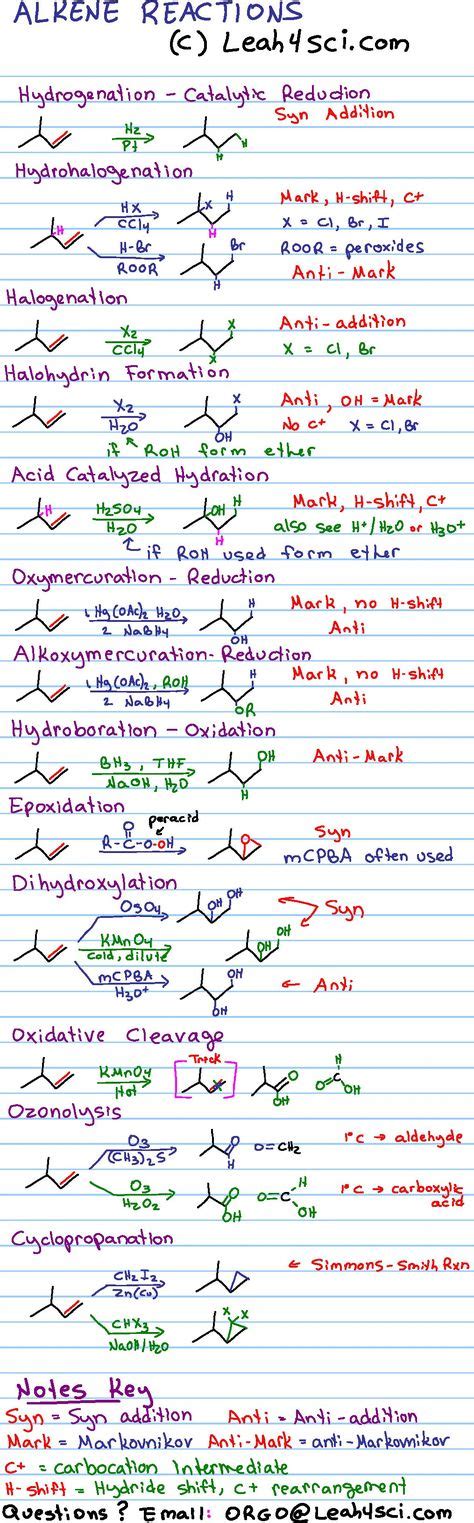 ALKENE REACTIONS
(C) Leah4Sci.com
Hydrogenation - Catalytic Reduction
Syn Addition
H2
Pt
H
H
Hydrohalogenation
H
HX
CCl4
X
H
H
Mark, H-shift, C+
X = Cl, Br, I
H-Br
ROOR
Br
H
ROOR = peroxides
Anti-Mark
Halogenation
X2
CCl4
X
X
Anti-addition
X = Cl, Br
Halohydrin Formation
X2
H2O
X
OH
Anti, OH = Mark
No C+ X = Cl, Br
if ROH form ether
Acid Catalyzed Hydration
H
H2SO4
H2O
OH
H
H
Mark, H-shift, C+
also see H+/H2O or H3O+
if ROH used form ether
Oxymercuration - Reduction
1 Hg(OAc)2 H2O
2 NaBH4
H
OH
Mark, no H-shift
Anti
Alkoxymercuration-Reduction
1 Hg(OAc)2, ROH
2 NaBH4
H
OR
Mark, no H-shift
Anti
Hydroboration - Oxidation
BH3, THF
NaOH, H2O
OH
H
Anti-Mark
Epoxidation
peracid
O
R-C-O-OH
O
Syn
mCPBA often used
Dihydroxylation
OsO4
OH
OH
Syn
KMnO4
cold, dilute
OH
OH
mCPBA
H3O+
OH
OH
Anti
Oxidative Cleavage
Trick
KMnO4
Hot
X
O
OH
H
O=C
OH
Ozonolysis
O3
(CH3)2S
O
H
O=CH2
1°C → aldehyde
O3
H2O2
O
OH
O=C
H
OH
1°C → carboxylic
acid
Cyclopropanation
CH2I2
Zn(Cu)
← Simmons-Smith Rxn
CHX3
NaOH/H2O
X X
Notes Key
Syn = Syn addition Anti = Anti-addition
Mark = Markovnikov Anti-Mark = anti-Markovnikov
C+ = carbocation Intermediate
H-shift = Hydride shift, C+ rearrangement
Questions? Email: ORGO@Leah4sci.com